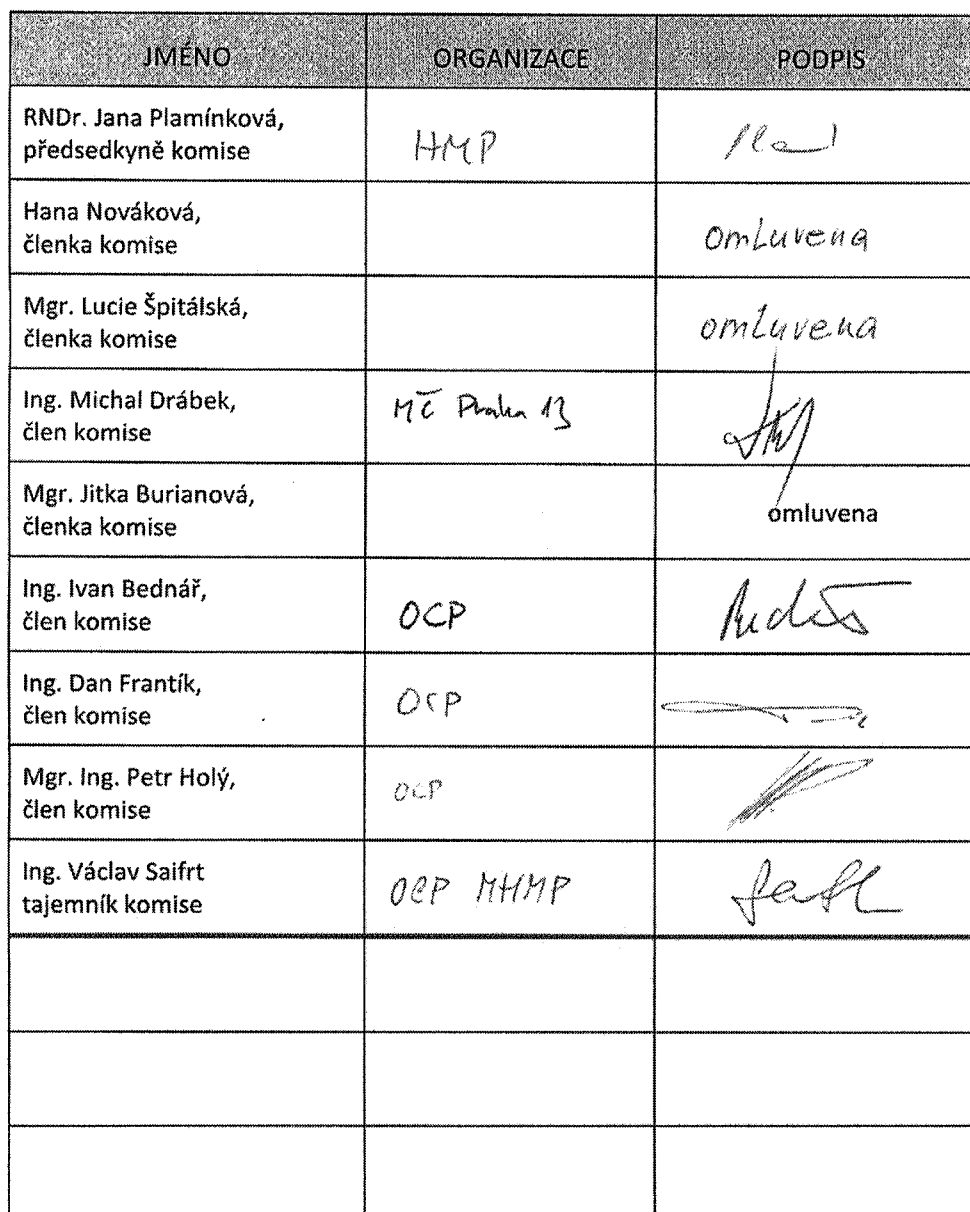 JMÉNO ORGANIZACE PODPIS
RNDr. Jana Plamínková,
předsedkyně komise HMP
Hana Nováková,
členka komise omluvena
Mgr. Lucie Špitálská,
členka komise omluvena
Ing. Michal Drábek,
člen komise MČ Praha 13
Mgr. Jitka Burianová,
členka komise omluvena
Ing. Ivan Bednář,
člen komise OCP
Ing. Dan Frantík,
člen komise OCP
Mgr. Ing. Petr Holý,
člen komise OCP
Ing. Václav Saifrt
tajemník komise OCP MHMP